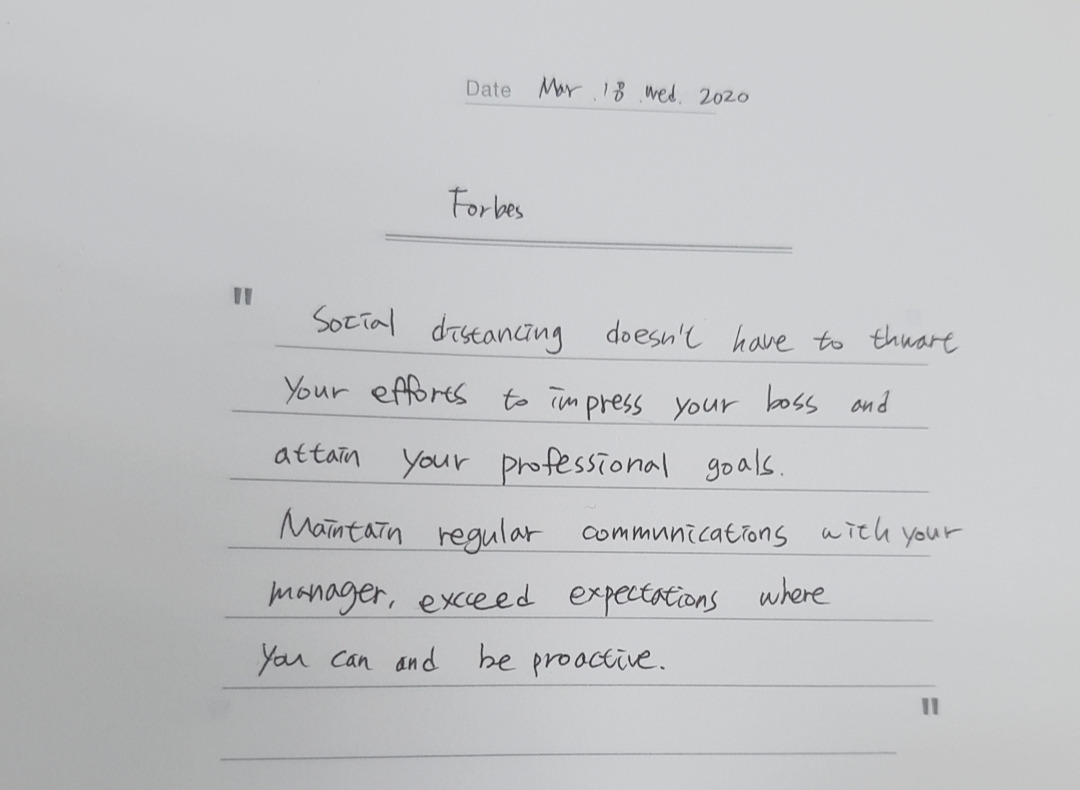 Date Mar. 18. Wed. 2020
Forbes
"
Social distancing doesn't have to thwart
your efforts to impress your boss and
attain your professional goals.
Maintain regular communications with your
manager, exceed expectations where
you can and be proactive.
"